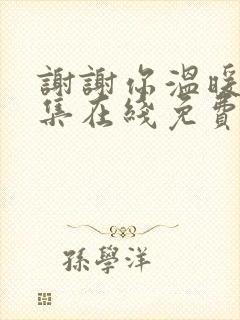 謝謝你溫暖
集在綫免費
孫學洋